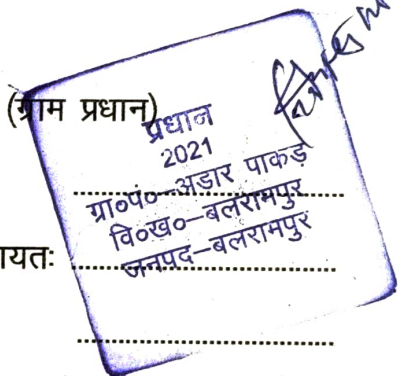 (ग्राम प्रधान)
प्रधान
2021
ग्रा०पं०–अडार पाकड़
वि०ख०–बलरामपुर
जनपद–बलरामपुर
यतः